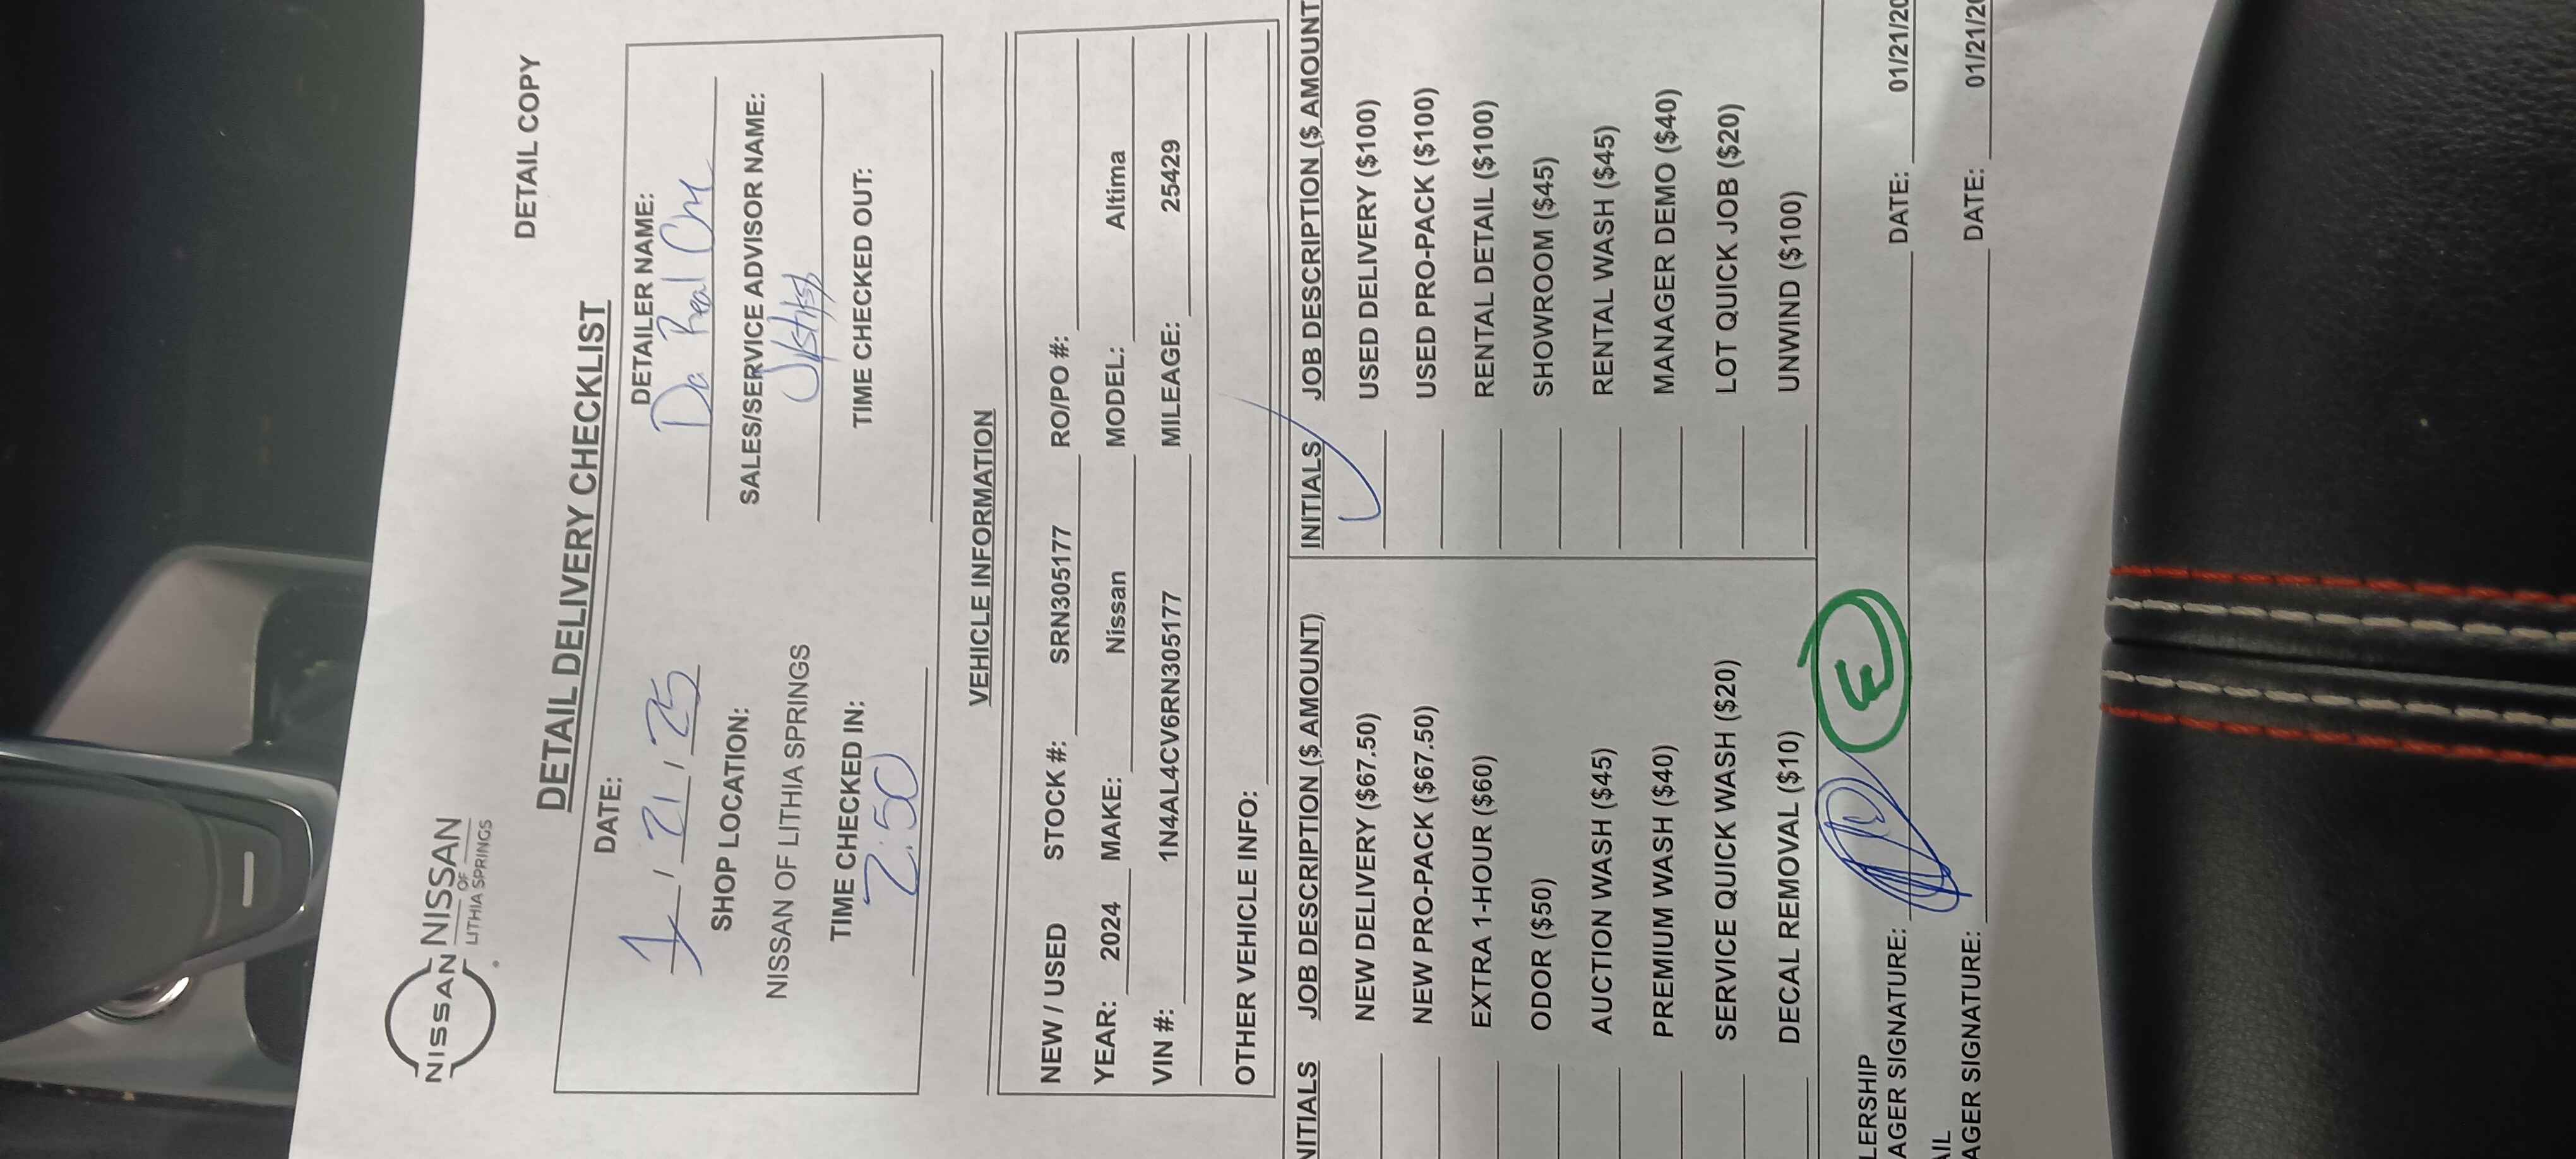 NISSAN NISSAN
OF
LITHIA SPRINGS
DETAIL COPY
DETAIL DELIVERY CHECKLIST
DATE: DETAILER NAME:
1 / 21 / 25 Da Real One
SHOP LOCATION: SALES/SERVICE ADVISOR NAME:
NISSAN OF LITHIA SPRINGS
TIME CHECKED IN: TIME CHECKED OUT:
2:50
VEHICLE INFORMATION
NEW / USED STOCK #: SRN305177 RO/PO #:
YEAR: 2024 MAKE: Nissan MODEL: Altima
VIN #: 1N4AL4CV6RN305177 MILEAGE: 25429
OTHER VEHICLE INFO:
NITIALS JOB DESCRIPTION ($ AMOUNT) INITIALS JOB DESCRIPTION ($ AMOUNT
NEW DELIVERY ($67.50) USED DELIVERY ($100)
NEW PRO-PACK ($67.50) USED PRO-PACK ($100)
EXTRA 1-HOUR ($60) RENTAL DETAIL ($100)
ODOR ($50) SHOWROOM ($45)
AUCTION WASH ($45) RENTAL WASH ($45)
PREMIUM WASH ($40) MANAGER DEMO ($40)
SERVICE QUICK WASH ($20) LOT QUICK JOB ($20)
DECAL REMOVAL ($10) UNWIND ($100)
LERSHIP
AGER SIGNATURE: DATE: 01/21/20
AIL
AGER SIGNATURE: DATE: 01/21/20